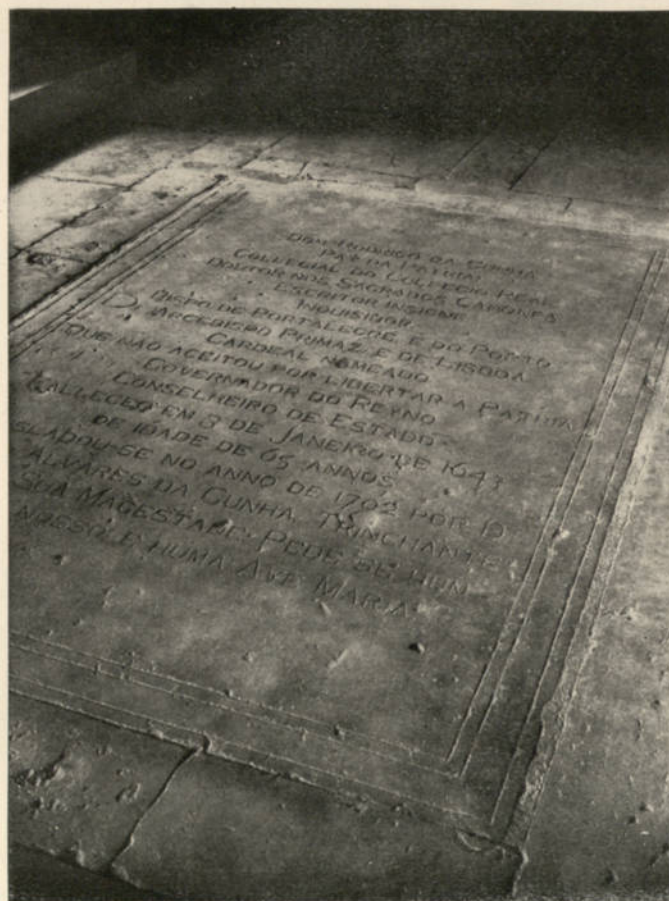 DOM RODRIGO DA CUNHA
PAY DA PATRIA
COLLEGIAL DO COLLEGIO REAL
DOUTOR NOS SAGRADOS CANONES
ESCRITOR INSIGNE
INQUISIDOR
BISPO DE PORTALEGRE E DO PORTO
ARCEBISPO PRIMAZ E DE LISBOA
CARDEAL NOMEADO
QUE NÃO ACEITOU POR LIBERTAR A PATRIA
GOVERNADOR DO REYNO
CONSELHEIRO DE ESTADO
FALLECEO EM 3 DE JANEIRO DE 1643
DE IDADE DE 65 ANNOS
SLADOU-SE NO ANNO DE 1702 POR D
ALVARES DA CUNHA TRINCHANTE
SUA MAGESTADE PEDE SE HUM
HUMA AVE MARIA